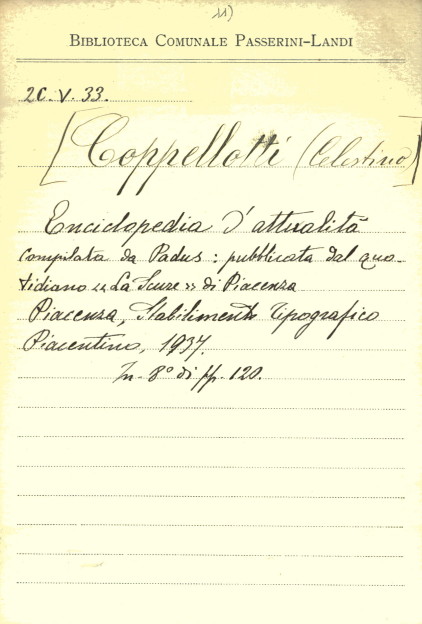 11)
BIBLIOTECA COMUNALE PASSERINI-LANDI
2C. V. 33.
[Coppellotti (Celestino)]
Enciclopedia d'attualità
compilata da Padus: pubblicata dal quo-
tidiano « La Scure » di Piacenza
Piacenza, Stabilimento Tipografico
Piacentino, 1937.
In-8° di pp. 120.